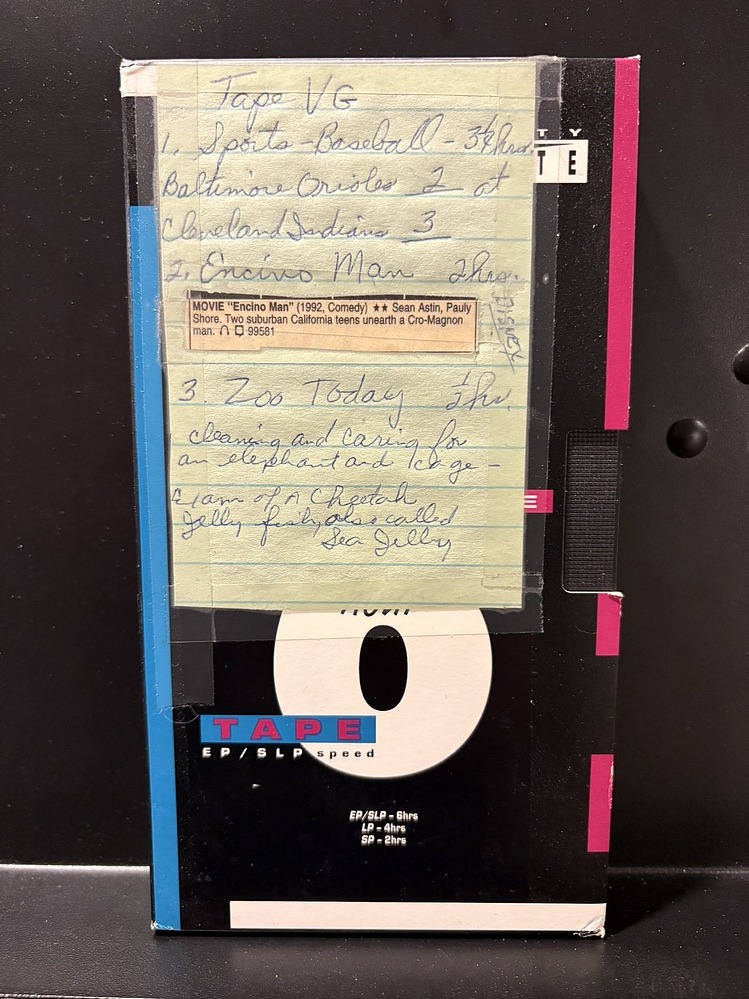 Tape VG
1. Sports-Baseball - 3¼hrs.
Baltimore Orioles 2 at
Cleveland Indians 3
2. Encino Man 2hrs.
DISNEY
MOVIE "Encino Man" (1992, Comedy) ★★ Sean Astin, Pauly
Shore. Two suburban California teens unearth a Cro-Magnon
man. 99581
3. Zoo Today ½hr.
cleaning and caring for
an elephant and cage -
Exam of A Cheetah
Jelly fish, also called
Sea Jelly
TY
TE
E
0
TAPE
EP/SLP speed
EP/SLP - 6hrs
LP - 4hrs
SP - 2hrs